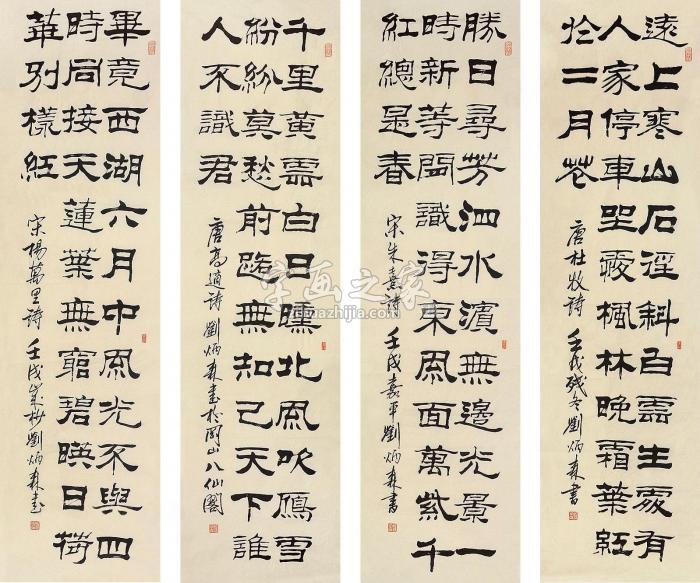 遠上寒山石徑斜白雲生處有
人家停車坐愛楓林晚霜葉紅
於二月花
唐杜牧詩 壬戌殘冬劉炳森書
勝日尋芳泗水濱無邊光景一
時新等閒識得東風面萬紫千
紅總是春
宋朱熹詩 壬戌嘉平劉炳森書
千里黃雲白日曛北風吹鴈雪
紛紛莫愁前路無知己天下誰
人不識君
唐高適詩 劉炳森書於山八仙閣
畢竟西湖六月中風光不與四
時同接天蓮葉無窮碧映日荷
華別樣紅
宋楊萬里詩 壬戌歲杪劉炳森書
字画之家